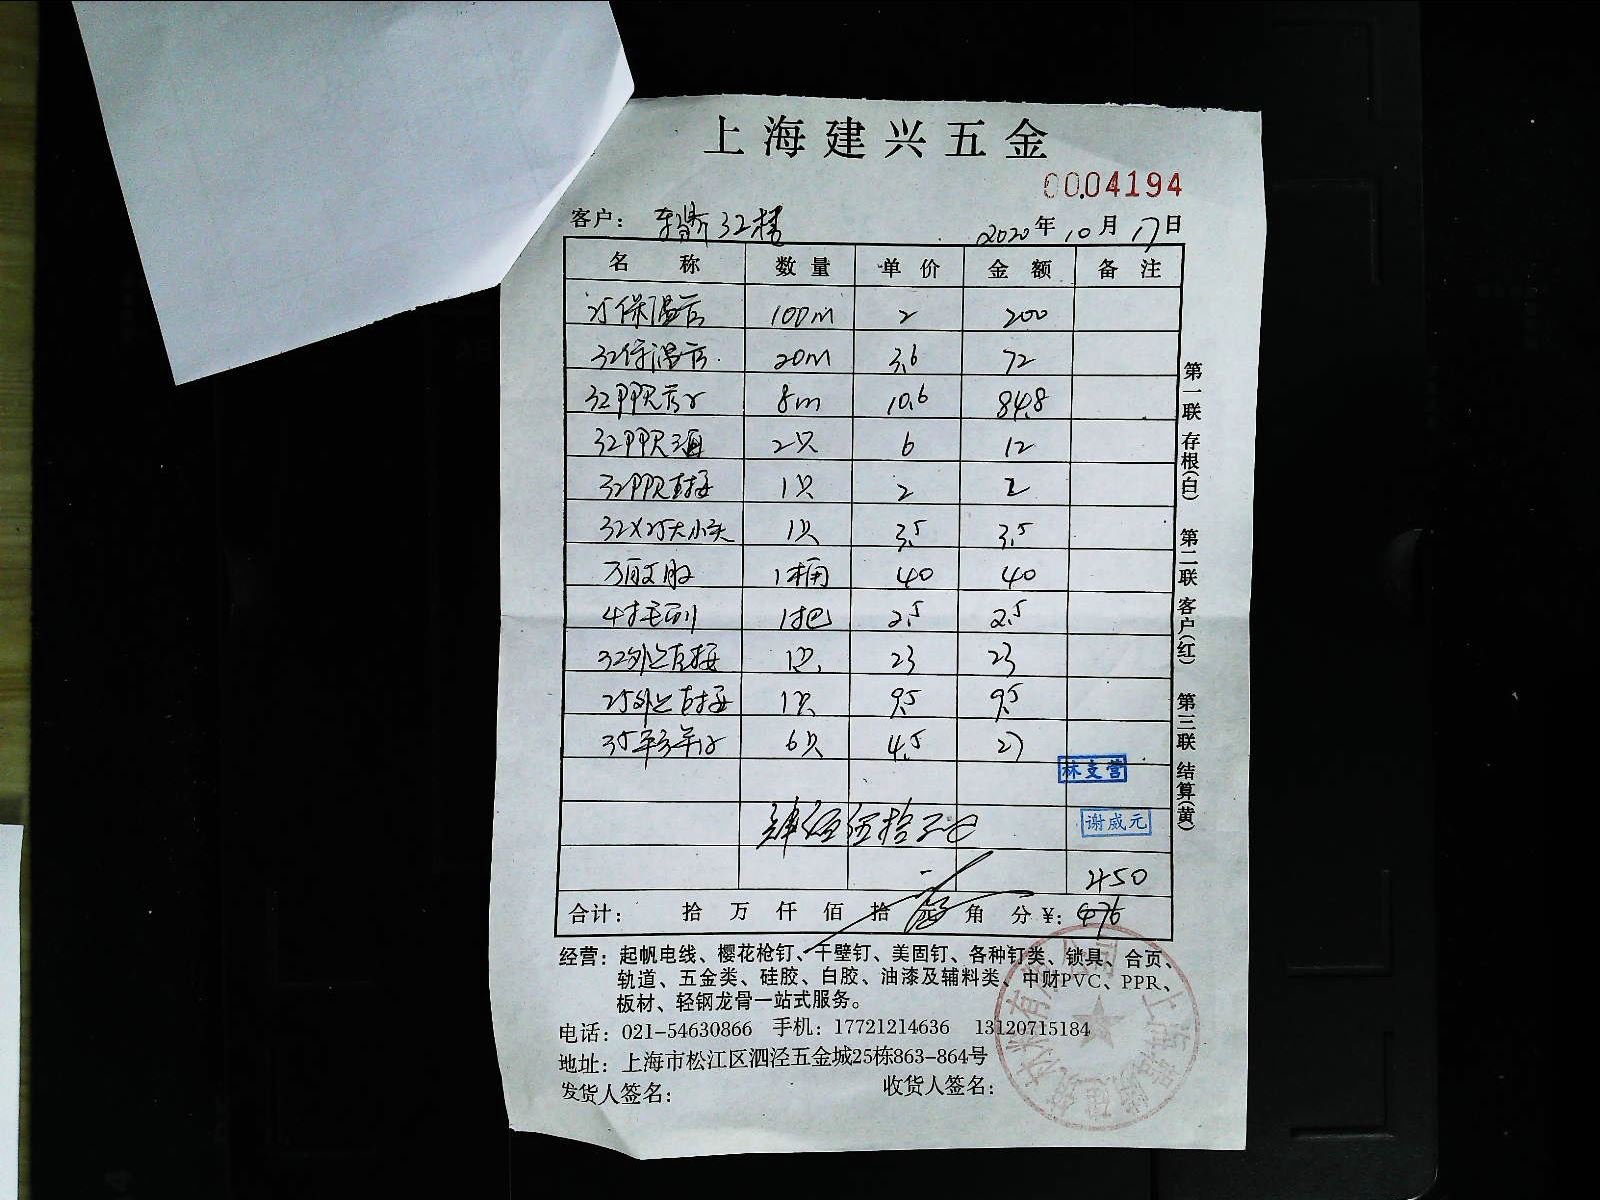 上海建兴五金
0004194
客户: 32楼 2020年10月17日
名称 数量 单价 金额 备注
25保温管 100m 2 200
32保温管 20m 3.6 72
32PPR管子 8m 10.6 84.8
32PPR三通 2只 6 12
32PPR直接 1只 2 2
32X25大小头 1只 3.5 3.5
万能胶 1桶 40 40
4寸毛刷 1把 2.5 2.5
32外丝直接 1只 23 23
25外丝直接 1只 9.5 9.5
6只 4.5 27
林支营
肆佰伍拾元
谢威元
450
合计: 拾 万 仟 佰 拾 元 角 分 ¥: 476
经营: 起帆电线、樱花枪钉、干壁钉、美固钉、各种钉类、锁具、合页、
轨道、五金类、硅胶、白胶、油漆及辅料类、中财PVC、PPR、
板材、轻钢龙骨一站式服务。
电话: 021-54630866 手机: 17721214636 13120715184
地址: 上海市松江区泗泾五金城25栋863-864号
发货人签名: 收货人签名:
第一联 存根(白) 第二联 客户(红) 第三联 结算(黄)